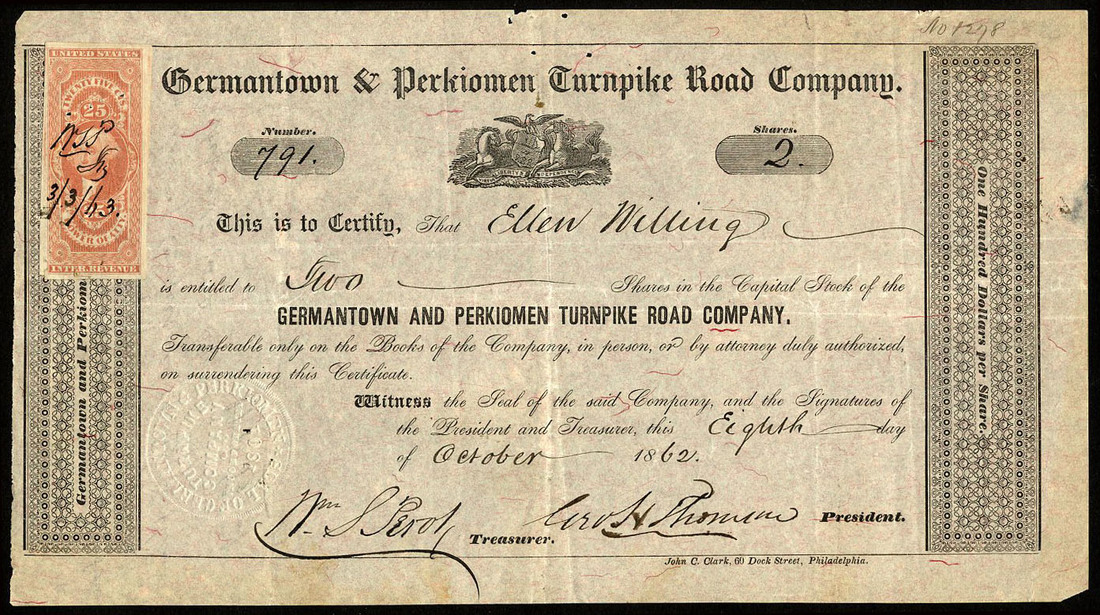 No 1298
UNITED STATES
TWENTY FIVE CTS.
25
WSP
3/3/63.
INTER. REVENUE
Germantown & Perkiomen Turnpike Road Company.
Number.
791.
Shares.
2.
This is to Certify, That Ellen Willing
is entitled to Two Shares in the Capital Stock of the
GERMANTOWN AND PERKIOMEN TURNPIKE ROAD COMPANY.
Transferable only on the Books of the Company, in person, or by attorney duly authorized,
on surrendering this Certificate.
Witness the Seal of the said Company, and the Signatures of
the President and Treasurer, this Eighth day
of October 1862.
Wm S Perot, Treasurer.
Geo H Thomson President.
John C. Clark, 60 Dock Street, Philadelphia.
Germantown and Perkiom
One Hundred Dollars per Share.